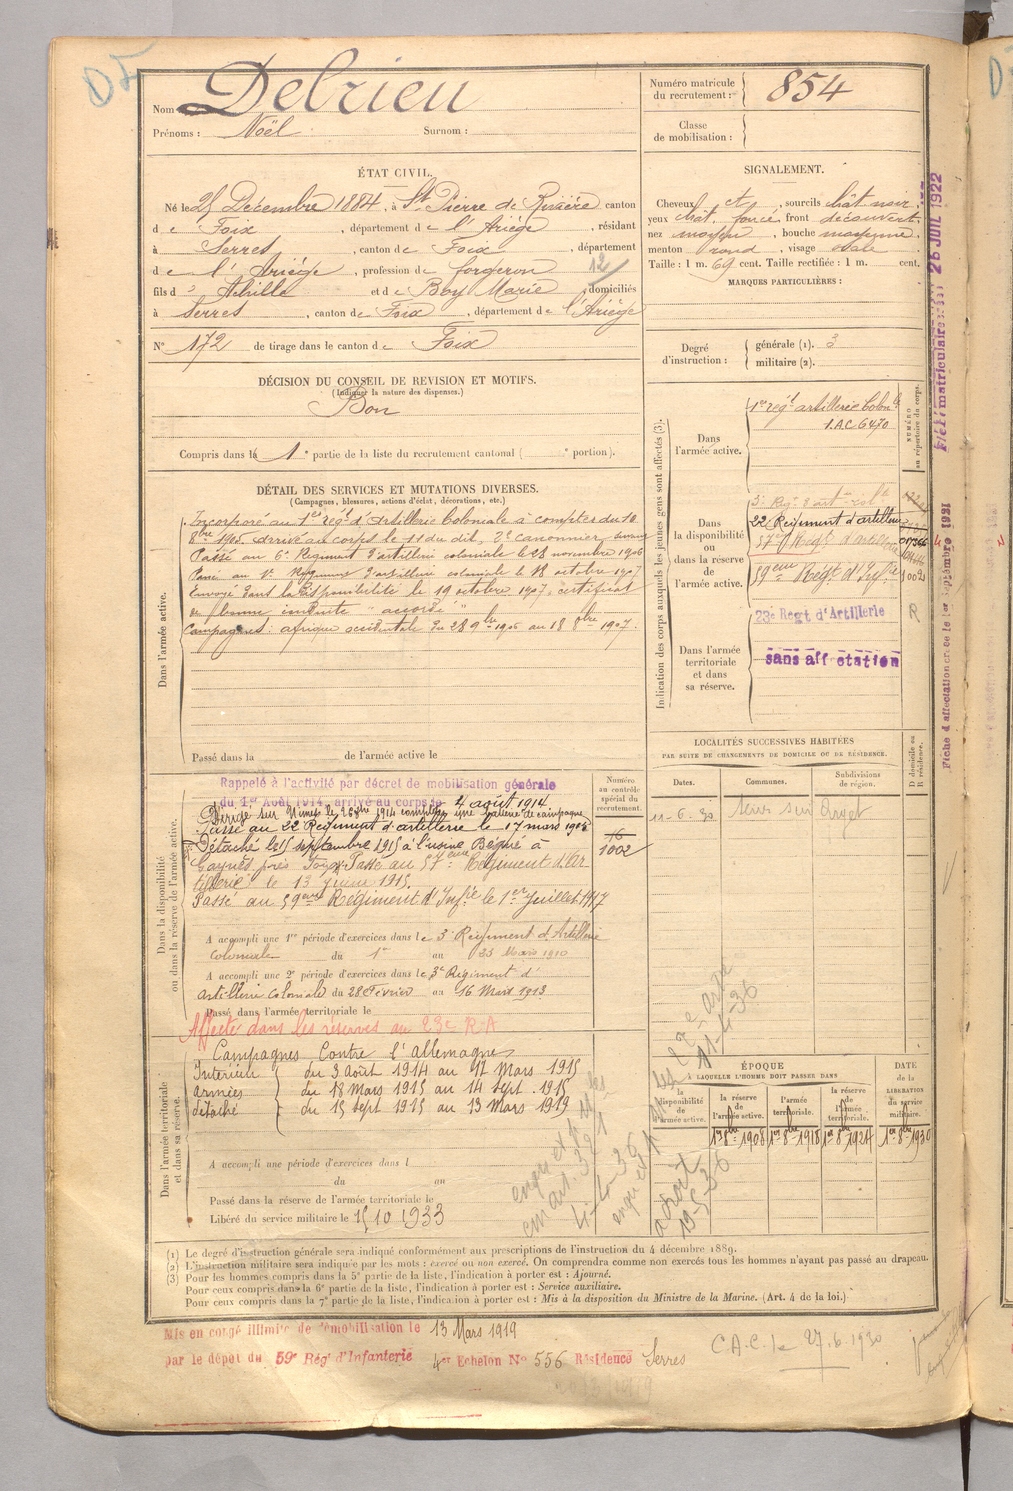 Nom Delrieu
Prénoms : Noël Surnom :
Numéro matricule du recrutement : 854
Classe de mobilisation :
ÉTAT CIVIL.
Né le 25 Décembre 1884, à St Pierre de Rivière canton
de Foix, département de l'Ariège, résidant
à Serres, canton de Foix, département
de l'Ariège, profession de forgeron 12
fils d' Achille et de Boy Marie, domiciliés
à Serres, canton de Foix, département de l'Ariège
N° 172 de tirage dans le canton de Foix
SIGNALEMENT.
Cheveux et, sourcils chat. noir
yeux chat. foncé, front découvert
nez moyen, bouche moyenne
menton rond, visage ovale
Taille : 1 m. 69 cent. Taille rectifiée : 1 m. cent.
MARQUES PARTICULIÈRES :
Degré d'instruction : générale (1). 3
militaire (2).
DÉCISION DU CONSEIL DE REVISION ET MOTIFS.
(Indiquer la nature des dispenses.)
Bon
Compris dans la 1e partie de la liste du recrutement cantonal ( e portion).
DÉTAIL DES SERVICES ET MUTATIONS DIVERSES.
(Campagnes, blessures, actions d'éclat, décorations, etc.)
Dans l'armée active.
Incorporé au 1er régt d'Artillerie Coloniale à compter du 10
8bre 1905. arrivé au corps le 11 du dit, 2e canonnier,
Passé au 6e Régiment d'artillerie coloniale le 28 novembre 1906
Passé au Régiment d'artillerie coloniale le 18 octobre 1907
Envoyé dans la Disponibilité le 19 octobre 1907, certificat
de bonne conduite "accordé"
Campagnes : afrique occidentale du 28 9bre 1906 au 18 8bre 1907.
Passé dans la de l'armée active le
Indication des corps auxquels les jeunes gens sont affectés (3).
NUMÉRO au répertoire du corps.
Dans l'armée active.
1er régt artillerie Colonle
1.A.C 6470
Dans la disponibilité ou dans la réserve de l'armée active.
3e Régt d'artie colle
22 Régiment d'artillerie
57eme Régt d'artillerie
59eme Régt d'Infie 1002
23e Régt d'Artillerie R
Dans l'armée territoriale et dans sa réserve.
sans affectation
LOCALITÉS SUCCESSIVES HABITÉES
PAR SUITE DE CHANGEMENTS DE DOMICILE OU DE RÉSIDENCE.
Dates. Communes. Subdivisions de région. D domicile ou R résidence.
11-6-30 Serres sur Arget
Dans la disponibilité ou dans la réserve de l'armée active.
Numéro au contrôle spécial du recrutement.
16
1002
Rappelé à l'activité par décret de mobilisation générale
du 1er Août 1914, arrivé au corps le 4 août 1914
Dirigé sur Nimes le 1914
Passé au 22 Régiment d'artillerie le 17 mars 1915
Détaché le 15 septembre 1915 à l'usine Bergne à
près Foix. Passé au 57eme Régiment d'Ar
tillerie le 13 1915.
Passé au 59eme Régiment d'Infie le 1er Juillet 1917
A accompli une 1re période d'exercices dans le 3e Régiment d'Artillerie
Coloniale du 1er au 23 Mars 1910
A accompli une 2e période d'exercices dans le 3e Régiment d'
Artillerie Coloniale du 28 Février au 16 Mars 1913
Passé dans l'armée territoriale le
Affecté dans les réserves au 23e R.A
Dans l'armée territoriale et dans sa réserve.
Campagnes Contre l'allemagne
Intérieur du 3 août 1914 au 17 Mars 1915
armées du 18 Mars 1915 au 14 sept. 1915
détaché du 15 sept 1915 au 13 Mars 1919
A accompli une période d'exercices dans l
du au
Passé dans la réserve de l'armée territoriale le
Libéré du service militaire le 15 10 1933
ÉPOQUE
À LAQUELLE L'HOMME DOIT PASSER DANS
la disponibilité de l'armée active.
la réserve de l'armée active. 1er 8bre 1908
l'armée territoriale. 1er 8bre 1918
la réserve de l'armée territoriale. 1er 8bre 1924
DATE de la LIBÉRATION du service militaire. 1er 8bre 1930
11-4-36
(1) Le degré d'instruction générale sera indiqué conformément aux prescriptions de l'instruction du 4 décembre 1889.
(2) L'instruction militaire sera indiquée par les mots : exercé ou non exercé. On comprendra comme non exercés tous les hommes n'ayant pas passé au drapeau.
(3) Pour les hommes compris dans la 5e partie de la liste, l'indication à porter est : Ajourné.
Pour ceux compris dans la 6e partie de la liste, l'indication à porter est : Service auxiliaire.
Pour ceux compris dans la 7e partie de la liste, l'indication à porter est : Mis à la disposition du Ministre de la Marine. (Art. 4 de la loi.)
Mis en congé illimité de démobilisation le 13 Mars 1919
par le dépôt du 59e Rég' d'Infanterie 4er Echelon N° 556 Résidence Serres
C.A.C. le 27.6.1930
26 JUIL 1922
Fiche d'affectation créée le 1er Septembre 1931